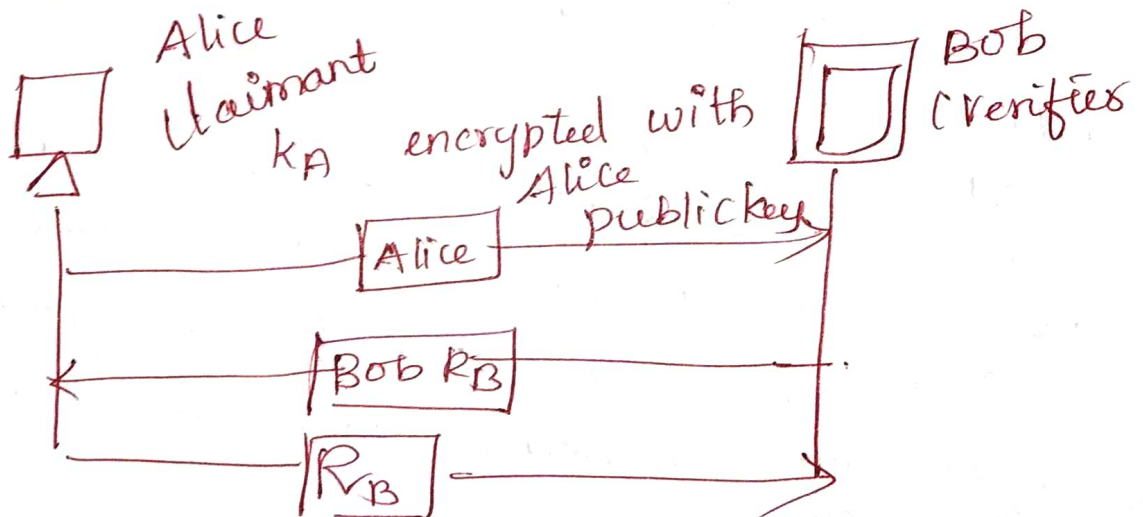 Alice
Claimant
Bob
(verifier
KA encrypted with
Alice
public key
Alice
Bob RB
RB